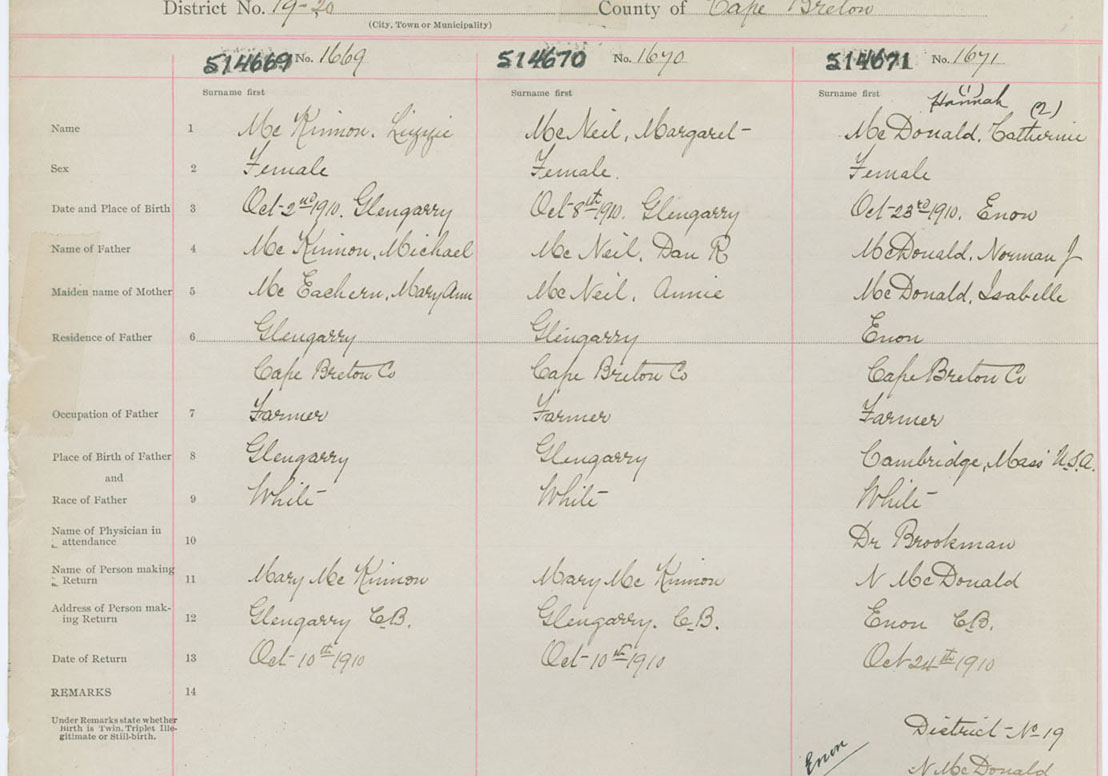 District No. 19-20 County of Cape Breton
(City, Town or Municipality)
514669 No. 1669 514670 No. 1670 514671 No. 1671
Surname first Surname first Surname first
Hannah (1) (2)
Name 1 McKinnon, Lizzie McNeil, Margaret McDonald, Catherine
Sex 2 Female Female. Female
Date and Place of Birth 3 Oct 2nd 1910. Glengarry Oct 8th 1910. Glengarry Oct 23rd 1910. Enon
Name of Father 4 McKinnon, Michael McNeil, Dan R McDonald, Norman J
Maiden name of Mother 5 McEachern, Mary Ann McNeil, Annie McDonald, Isabelle
Residence of Father 6 Glengarry Glengarry Enon
Cape Breton Co Cape Breton Co Cape Breton Co
Occupation of Father 7 Farmer Farmer Farmer
Place of Birth of Father 8 Glengarry Glengarry Cambridge, Mass U.S.A.
and
Race of Father 9 White White White
Name of Physician in
attendance 10 Dr Brookman
Name of Person making
Return 11 Mary McKinnon Mary McKinnon N McDonald
Address of Person mak-
ing Return 12 Glengarry C.B. Glengarry. C.B. Enon C.B.
Date of Return 13 Oct 10th 1910 Oct 10th 1910 Oct 24th 1910
REMARKS 14
Under Remarks state whether
Birth is Twin, Triplet Ille-
gitimate or Still-birth.
District No 19
Enon N McDonald